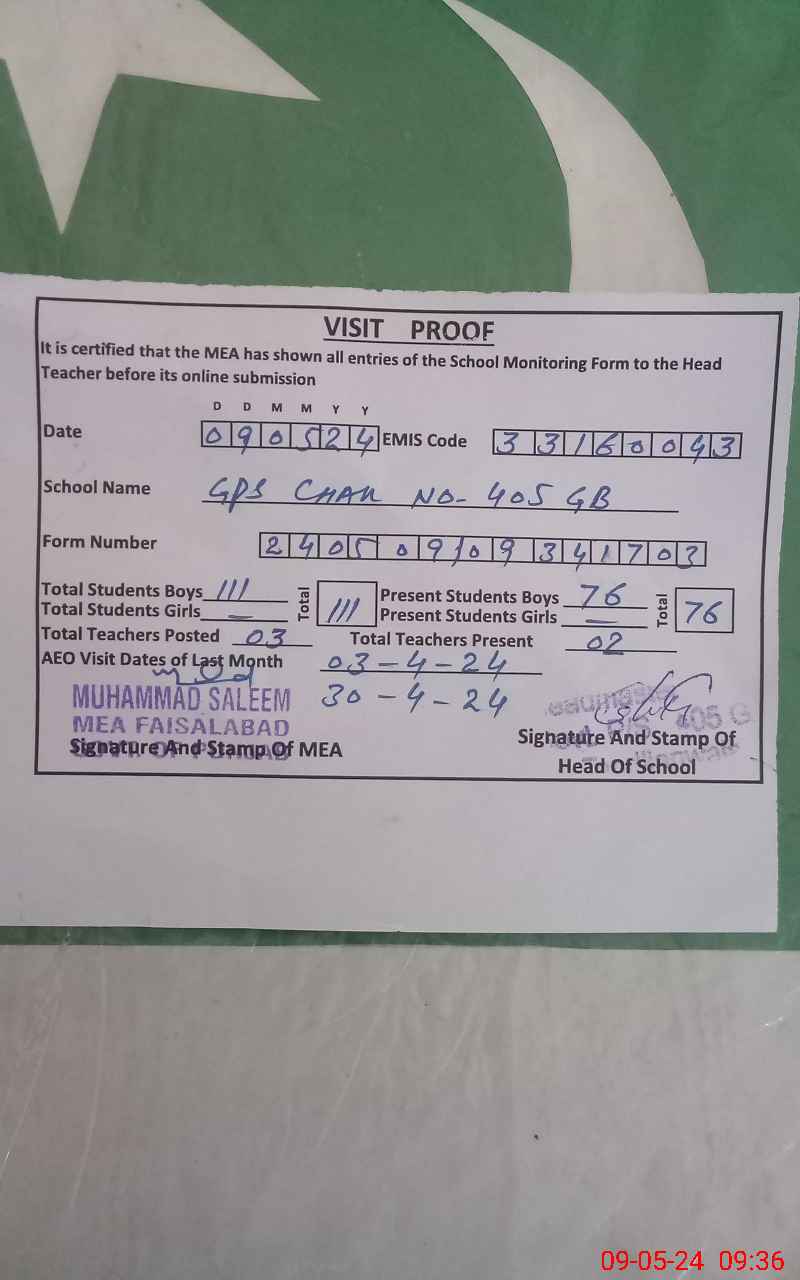 VISIT PROOF
It is certified that the MEA has shown all entries of the School Monitoring Form to the Head
Teacher before its online submission
D D M M Y Y
Date 090524 EMIS Code 33160043
School Name GPS CHAK NO- 405 GB
Form Number 240509109341703
Total Students Boys 111 Total 111 Present Students Boys 76 Total 76
Total Students Girls — Present Students Girls —
Total Teachers Posted 03 Total Teachers Present 02
AEO Visit Dates of Last Month 03-4-24
30-4-24
MUHAMMAD SALEEM
MEA FAISALABAD
Signature And Stamp Of MEA
405 G
Signature And Stamp Of
Head Of School
09-05-24 09:36